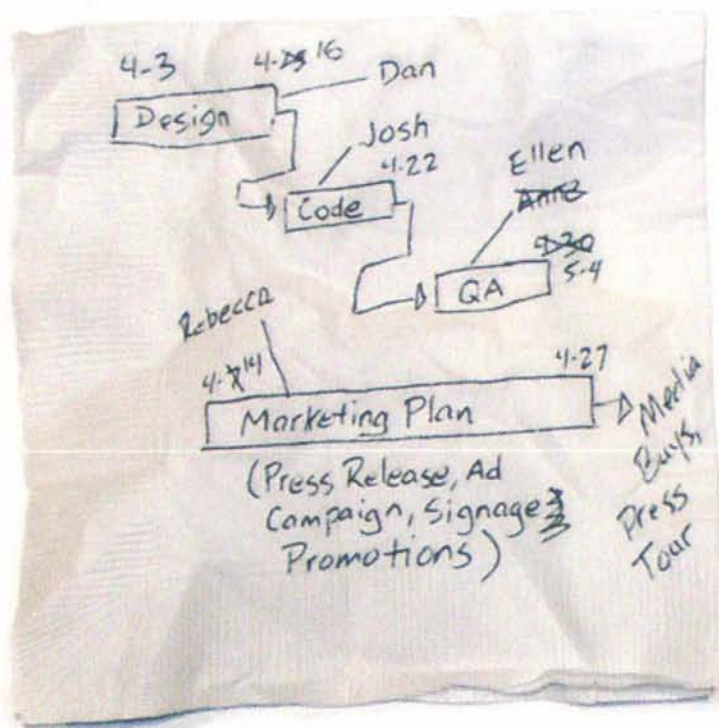 4-3 4-16
Dan
Design
Josh
4-22
Code
Ellen
Anne
4-30
5-4
QA
Rebecca
4-14 4-27
Marketing Plan
Media
Buys,
Press
Tour
(Press Release, Ad
Campaign, Signage
Promotions)